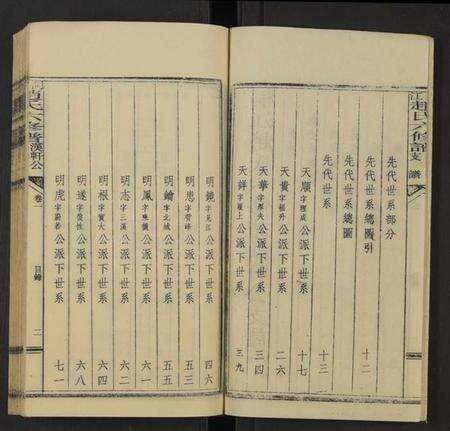 先代世系部分
先代世系總圖引 十二
先代世系總圖 十三
先代世系
天順字理成公派下世系 十七
天貴字福升公派下世系 二六
天華字厚夫公派下世系 三四
天祥字履上公派下世系 三九
明鏡字見江公派下世系 四六
明忠字曾峰公派下世系 五三
明鑰字北城公派下世系 五五
明鳳字珠儀公派下世系 六一
明志字三漢公派下世系 六二
明根字實大公派下世系 六四
明遂字復性公派下世系 六八
明虎字蔚若公派下世系 七一
卷一 目錄 二
氏六修譜漢軒公
江趙氏六修譜支譜